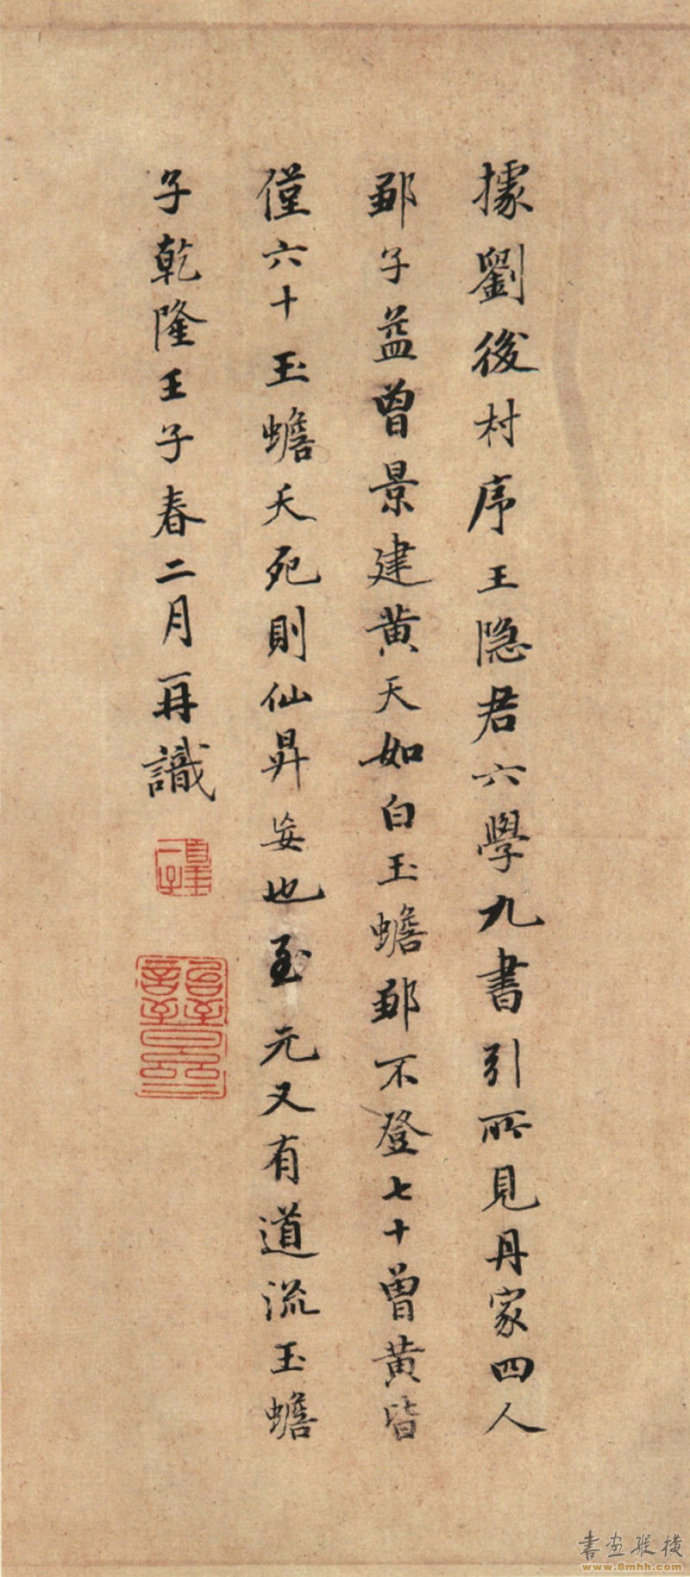 據劉後村序王隐君六學九書引所見丹家四人
鄒子益曾景建黄天如白玉蟾鄒不登七十曾黄皆
僅六十玉蟾夭死則仙昇妄也至元又有道流玉蟾
子乾隆壬子春二月再識
書画纵横
www.8mhh.com